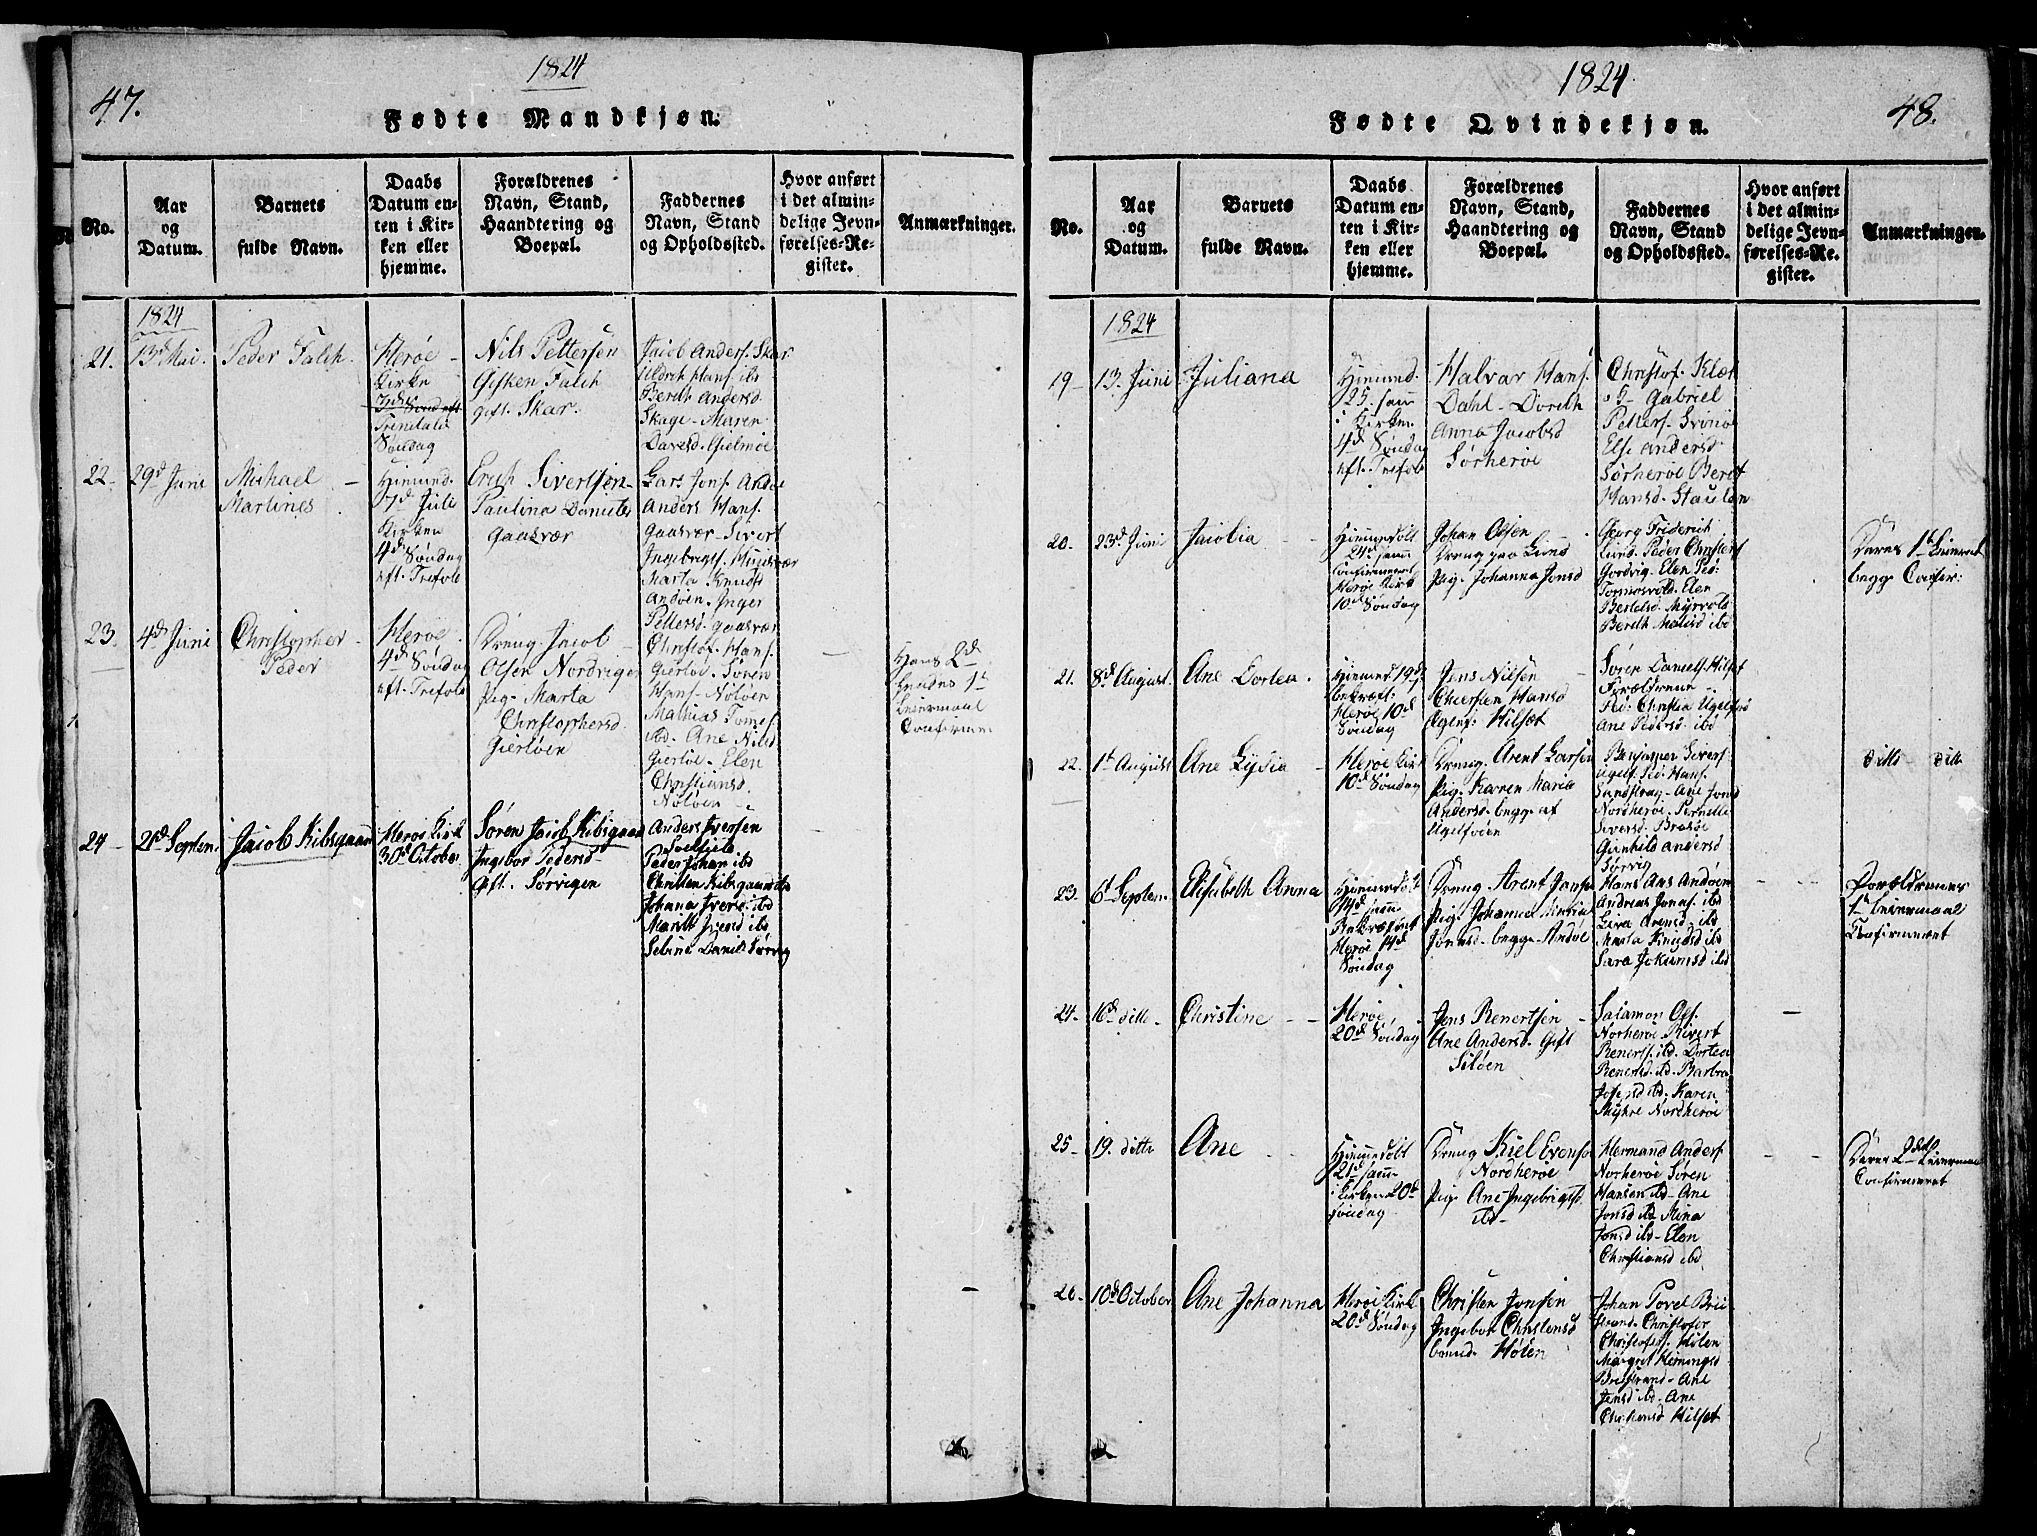 47.
1824
Fødte Mandkjøn.
No.
Aar
og
Datum.
Barnets
fulde Navn.
Daabs
Datum en-
ten i Kir-
ken eller
hjemme.
Forældrenes
Navn, Stand,
Haandtering og
Boepæl.
Faddernes
Navn, Stand
og Opholdssted.
Hvor anført
i det almin-
delige Jevn-
førelses-Re-
gister.
Anmærkninger.
1824
21.
13d Mai.
Peder Falch.
Herøe
Kirke
3die Sønd eft
Trinitatis
Søndag
Nils Pettersen
Gisken Falch
gift. Skar.
Jacob Anders. Skar
Uldrik Hans. ibd
Bereth Andersd
Skage - Maren
22.
29d Juni
Michael
Martines
7d Juli
Kirken
4d Søndag
eft. Trefold
Erich Sivertsen
Paulina Daniels
Gaasvær
Lars Jons. Andøe
Anders Hans.
Gaasvær - Sivert
Ingebrigts. Husvær
Marta Knuds
Andøen. Inger
Petersd. Gaasvær
23.
4d Juni
Christopher
Peder
Herøe
4d Søndag
eft. Trefold
Dreng Jacob
Olsen Nordvigen
Pig. Marta
Christophersd.
Gierløen
Christof. Hans.
Gierløe. Søren
Hans. Nøløen
Mathias Tomes.
ibd. Ane Nilsd
Gierløe. Elen
Christiansd.
Nøløen
Hans 2d
Hendes 1t
Leiermaal
Confirm.
24
21d Septem
Jacob Kibsgaard
Herøe Kirk
30d October
Søren Jacob Kibsgaard
Ingebor Pedersd
Gift. Sørvigen
Anders Iversen
Peder Johan ibd
Christen Kibsgaard ibd
Johana Iversd ibd
Marith Iversd ibd
Sebina Daniels Sørvig
1824
48.
Fødte Qvindekjøn.
No.
Aar
og
Datum.
Barnets
fulde Navn.
Daabs
Datum en-
ten i Kir-
ken eller
hjemme.
Forældrenes
Navn, Stand,
Haandtering og
Boepæl.
Faddernes
Navn, Stand
og Opholdssted.
Hvor anført
i det almin-
delige Jevn-
førelses-Re-
gister.
Anmærkninger.
1824
19
13. Juni
Juliana
25. sam
i Kirken
4d Søndag
eft. Trefold
Halvar Hans.
Dahl - Doreth
Anna Jacobsd
Sørherøe
Gabriel
Petters. Svinø
Else Andersd
Sørherøe Beret
Hansd.
20.
23d Juni
Jacobia
Hiemmedøbt
24d sam
Confirmeret
Herøe Kirk
10d Søndag
Johan Olsen
Dreng paa Lund
Pig. Johanna Jonsd
Georg Friderich
Lund. Peder Christofs
Elen Ped:
Tormosvold. Elen
Bertelsd. Myrvold
Bereth Matisd ibd
Deres 1te Leiermaal
begge Confir:
21.
8d August.
Ane Dortea.
Hiemmed. 19d
bekræft.
Herøe 10d
Søndag
Jens Nilsen
Chiersten Hansd
Egenf. Hilsæt
Søren Daniels. Hilsæt
Forældrene
Ane Pedersd. ibd
22.
1t August
Ane Lydia
Herøe Kirk
10d Søndag
Dreng. Arent Larsen
Pig. Karen Maria
Andersd. begge af
Ugelføen
Sandstrag - Ane Jonsd
Nordherøe. Pernelle
Siversd. Brasøe
Gunhild Andersd
Sørvig
ditto - ditto
23.
6t Septem.
Elisabeth Anna
Hiemmedøbt
14d sam
Bekræftet
Herøe 14d
Søndag
Dreng Arent Jonsen
Pig. Johanna Maria
Jonsd. begge Andøe
Hans Ans Andøen
Andreas Jonas. ibd
Liva Arensd. ibd
Marta Knudsd ibd
Sara Jokumsd ibd
Forældrenes
1te Leiermaal
Confirmeret
24.
16d ditto
Christine
Herøe
20d Søndag
Jens Renertsen
Ane Andersd. Gift
Siløen
Salamon Ols.
Norherøe Sivert
Renerts. ibd. Dortea
Renersd. ibd. Barbra
Josepsd ibd. Karen
Myhre Nordherøe
25
19. ditto
Ane
Hiemmedøbt
21d sam
i Kirken 20d
Søndag
Dreng Kiel Evens.
Nordherøe
Pig. Ane Ingebrigts.
ibd
Hermand Anders.
Norherøe Søren
Hansen ibd - Ane
Jonsd ibd Mina
Jonsd ibd - Elen
Christiansd ibd.
Deres 2det Leiermaal
Confirmeret
26.
10d October
Ane Johanna
Herøe Kirk
20d Søndag
Christen Jonsen
Ingebor Christensd
Høien
Johan Povel Brü
strand. Christofer
Christofers. Hilen
Margret Hemingsd
Brüstrand - Ane
Jensd ibd. Ane
Christensd Hilset